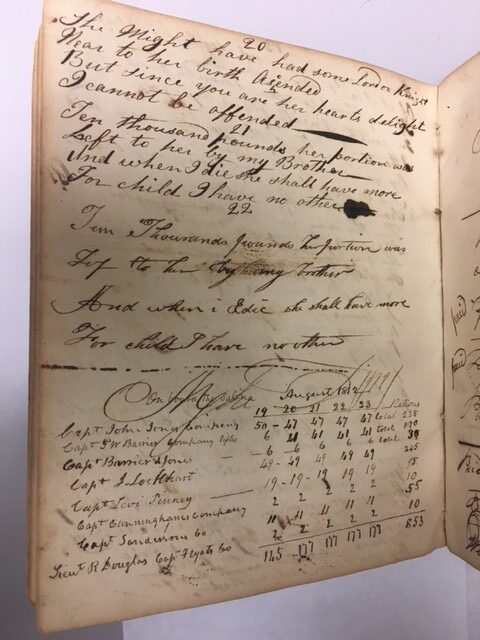 20
She Might have had some Lord or Knight
Near to her birth Asended
But since you are her hearts delight
I cannot be affended
21
Ten thousand pounds her portion was
Left to her by my Brother
And when I die she shall have more
For child I have no other
22
Ten Thousands pounds her portion was
Lef to her by my brother
And when i Edie she shall have more
For child I have no other
August 1812
19 20 21 22 23
Capt John Jones Company 50 - 47 47 47 47 total 238
Capt J W Barrier Company 6 41 41 41 41 total 170
Capt Barrier & Jones - 6 - 6 6 6 6 total 30
Capt J Lockheart 49 - 49 49 49 49 245
Capt Levi Pinney 19 - 19 - 19 19 19 95
Capt Cunninghams Company 2 2 2 2 2 10
Capt Sandersons Co 11 11 11 11 11 55
Lieut R Douglas Capt Co 2 2 2 2 2 10
145 177 177 177 177 853
paid
paid